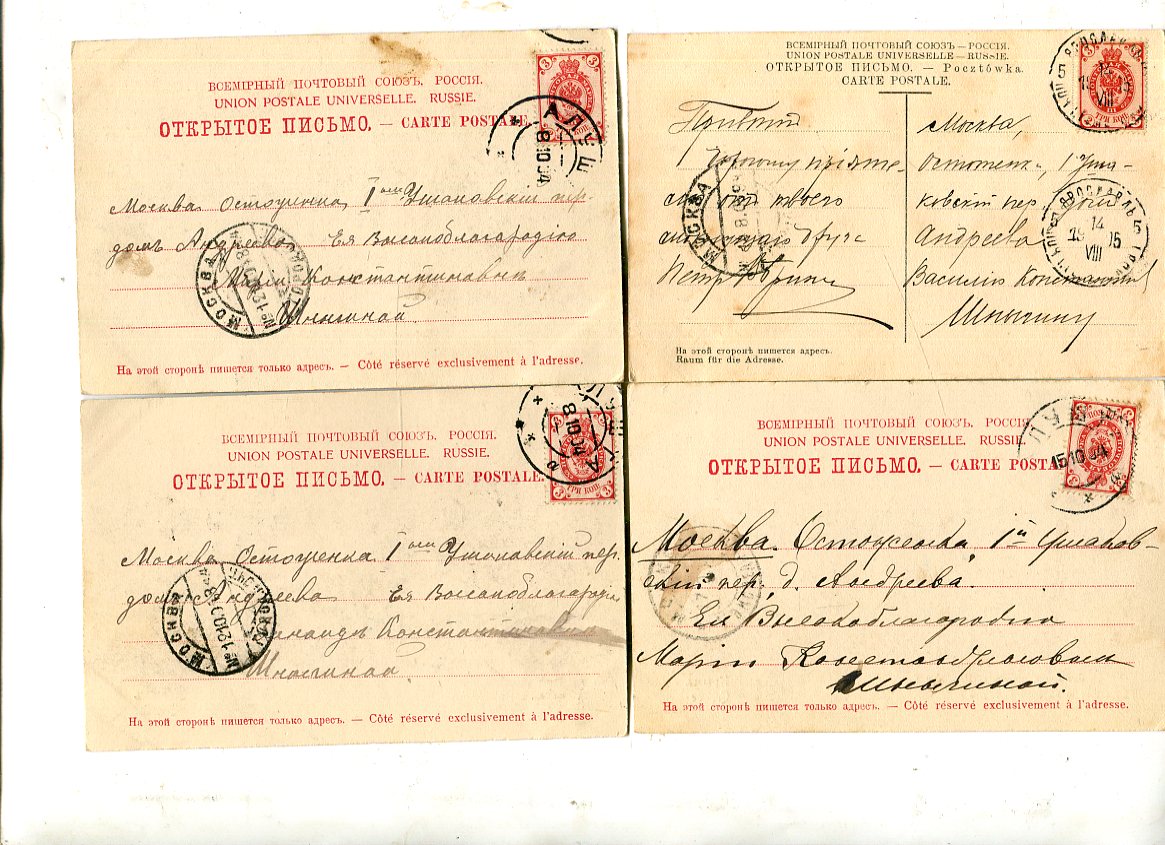 ВСЕМІРНЫЙ ПОЧТОВЫЙ СОЮЗЪ. РОССІЯ.
UNION POSTALE UNIVERSELLE. RUSSIE.
ОТКРЫТОЕ ПИСЬМО. — CARTE POSTALE.
АЛУШ
8 10 04
Москва Остоженка, I ый Ушаковскій пер.
домъ Андреева Ея Высокоблагородію
Маріи Константиновнѣ
Шныгиной
МОСКВА
На этой сторонѣ пишется только адресъ. — Côté réservé exclusivement à l'adresse.
ВСЕМІРНЫЙ ПОЧТОВЫЙ СОЮЗЪ — РОССІЯ.
UNION POSTALE UNIVERSELLE — RUSSIE.
ОТКРЫТОЕ ПИСЬМО. — Pocztówka.
CARTE POSTALE.
ТРИ КОП
Москва,
Остоженка, 1 Уша-
ковскій пер. домъ
Андреева
Василію Константинов
Шныгину
МОСКВА
ЯРОСЛАВЛЬ
14 VIII 05
На этой сторонѣ пишется адресъ.
Raum für die Adresse.
ВСЕМІРНЫЙ ПОЧТОВЫЙ СОЮЗЪ. РОССІЯ.
UNION POSTALE UNIVERSELLE. RUSSIE.
ОТКРЫТОЕ ПИСЬМО. — CARTE POSTALE.
8 10 04
ТРИ КОП
Москва Остоженка I ый Ушаковскій пер.
домъ Андреева Ея Высокоблагород
Константиновнѣ
Шныгиной
МОСКВА
На этой сторонѣ пишется только адресъ. — Côté réservé exclusivement à l'adresse.
ВСЕМІРНЫЙ ПОЧТОВЫЙ СОЮЗЪ. РОССІЯ.
UNION POSTALE UNIVERSELLE. RUSSIE.
ОТКРЫТОЕ ПИСЬМО. — CARTE POSTA
15 10 04
Москва. Остоженка, 1й Ушаков-
скій пер. д. Андреева.
Ея Высокоблагородію
Маріи Константиновнѣ
Шныгиной.
На этой сторонѣ пишется только адресъ. — Côté réservé exclusivement à l'adresse.